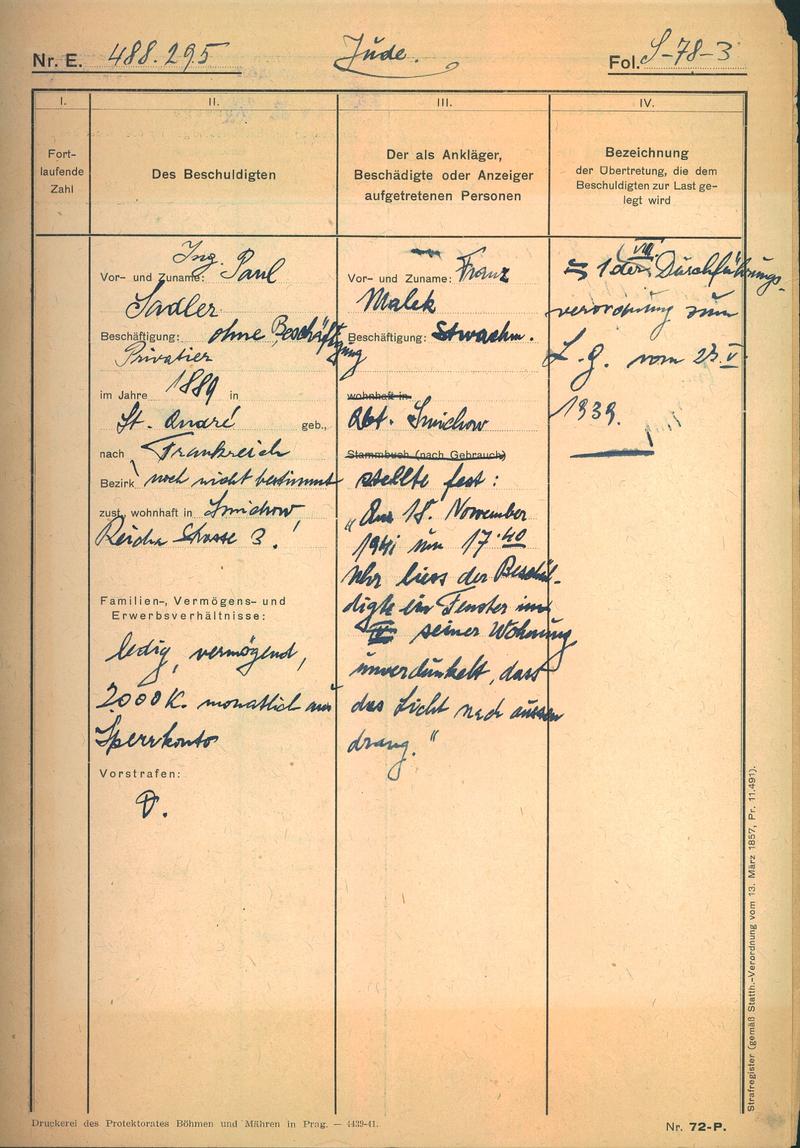 Nr. E. 488.295
Jude.
Fol. S-78-3
I.
II.
III.
IV.
Fort-
laufende
Zahl
Des Beschuldigten
Der als Ankläger,
Beschädigte oder Anzeiger
aufgetretenen Personen
Bezeichnung
der Übertretung, die dem
Beschuldigten zur Last ge-
legt wird
Ing.
Vor- und Zuname: Paul
Sadler
Beschäftigung: ohne Beschäfti-
gung
Privatier
im Jahre 1889 in
St. André geb.,
nach Frankreich
Bezirk noch nicht bestimmt
zust., wohnhaft in Smichow,
Reichs Strasse 3.
Familien-, Vermögens- und
Erwerbsverhältnisse:
ledig, vermögend,
2000 K. monatlich aus
Sperrkonto
Vorstrafen:
Vor- und Zuname: Franz
Malek
Beschäftigung: Stwachm.
wohnhaft in
Abt. Smichow
Stammbuch (nach Gebrauch)
stellte fest:
"Am 18. November
1941 um 17.40
Uhr liess der Beschul-
digte ein Fenster im
seiner Wohnung
unverdunkelt, dass
das Licht nach aussen
drang."
VIII.
§ 1 der Durchführungs-
verordnung zum
L. G. vom 23. V.
1939.
Strafregister (gemäß Statth.-Verordnung vom 13. März 1857, Pr. 11.491).
Druckerei des Protektorates Böhmen und Mähren in Prag. — 4439-41.
Nr. 72-P.